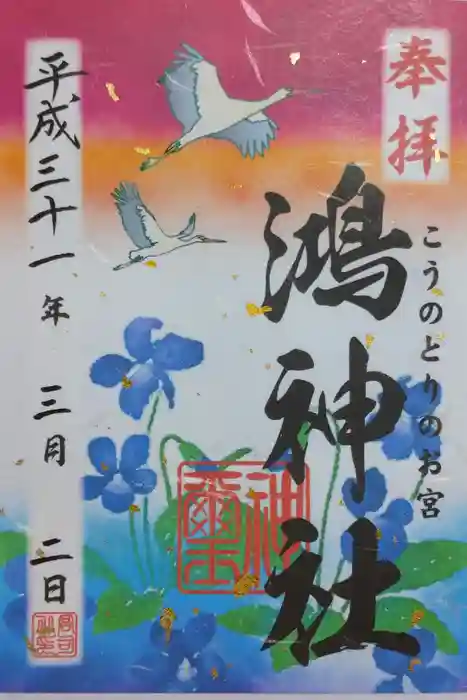 奉拝
こうのとりのお宮
鴻神社
平成三十一年 三月 二日